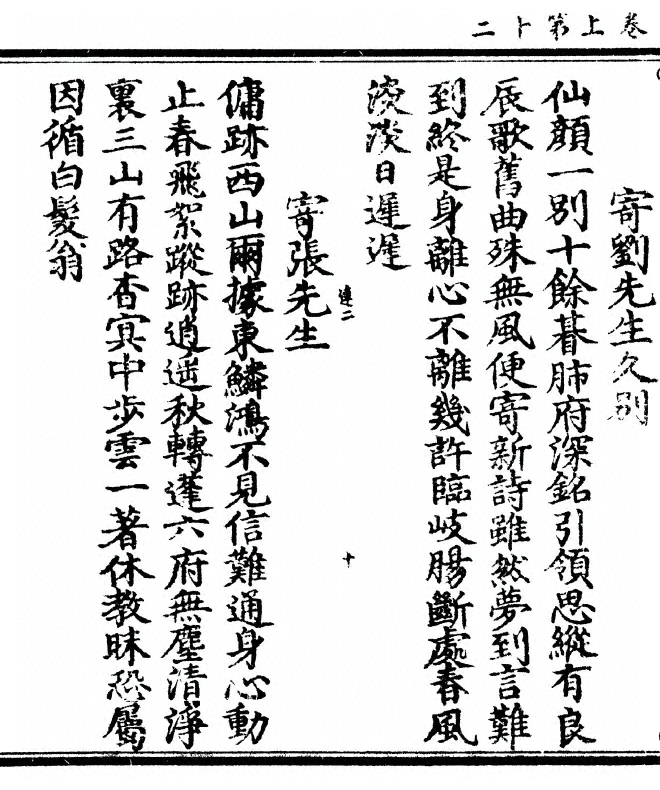 卷上第十二
寄劉先生久別
仙顏一別十餘朞肺府深銘引領思縱有良
辰歌舊曲殊無風便寄新詩雖然夢到言難
到終是身離心不離幾許臨岐腸斷處春風
淡淡日遲遲
寄張先生
達二
十
傭跡西山爾據東鱗鴻不見信難通身心動
止春飛絮蹤跡逍遥秋轉蓬六府無塵清淨
裏三山有路杳冥中步雲一著休教昧恐屬
因循白髮翁